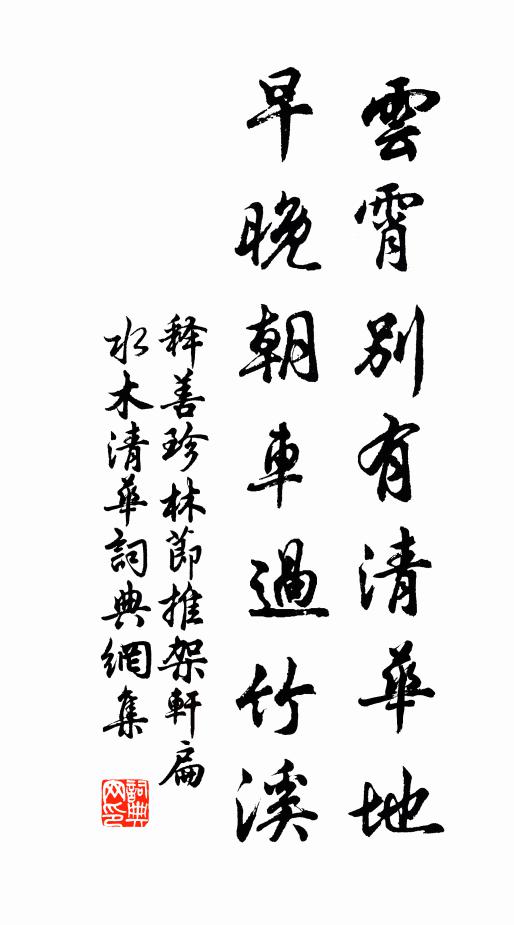 雲霄別有清華地
早晚朝車過竹溪
释善珍林節推架軒扁
水木清華詞典網集
詞典